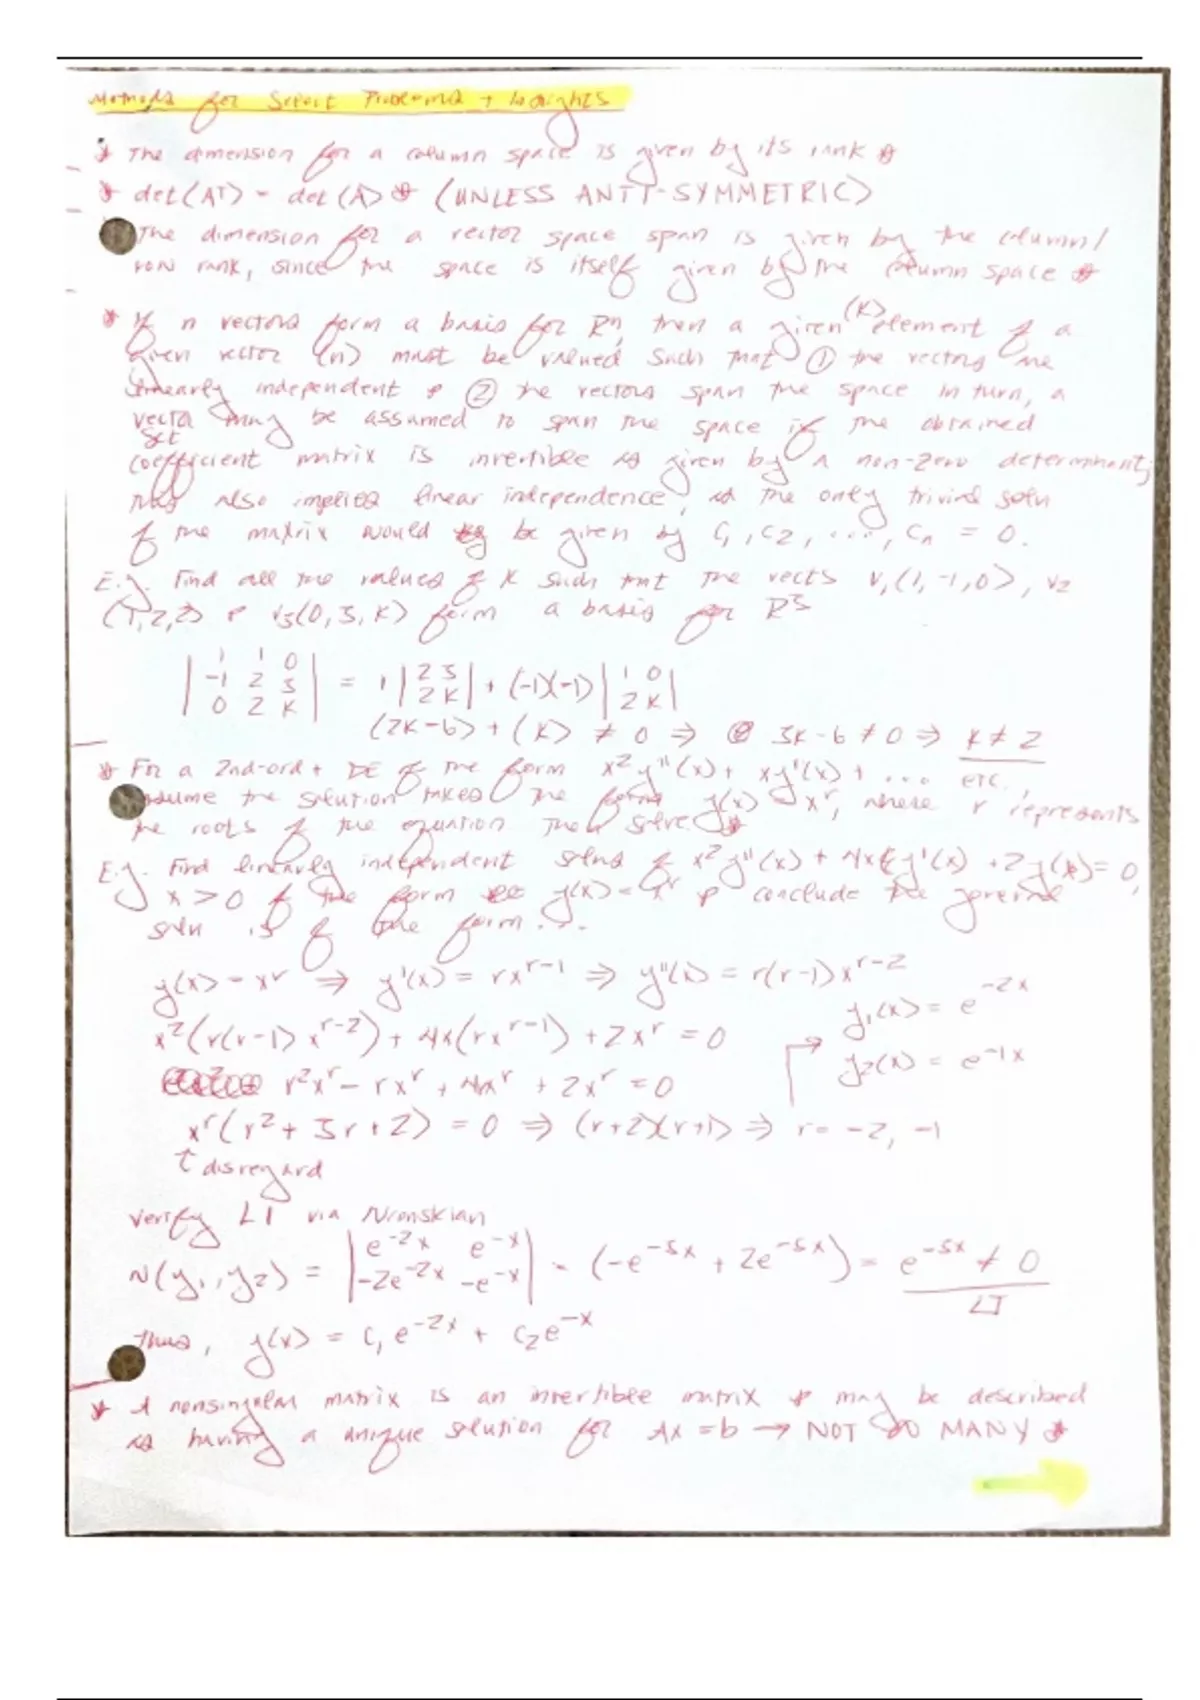 Methods for Select Problems + Insights
* The dimension for a column space is given by its rank *
* det(AT) = det(A) * (UNLESS ANTI-SYMMETRIC)
The dimension for a vector space span is given by the column/
row rank, since the space is itself given by the column space *
* If n vectors form a basis for Rⁿ, then a given (K) element of a
given vector (n) must be valued such that ① the vectors are
linearly independent & ② the vectors span the space in turn, a
vector set may be assumed to span the space if the obtained
coefficient matrix is invertible as given by a non-zero determinant;
this also implies linear independence, as the only trivial soln
of the matrix would be given by C₁, C₂, ..., Cn = 0.
E.g. Find all the values of K such that the vects v₁(1,-1,0), v₂
(1,2,2) & v₃(0,3,K) form a basis for R³
| 1 1 0 |
| -1 2 3 | = 1 | 2 3 | + (-1)(-1) | 1 0 |
| 0 2 K | | 2 K | | 2 K |
(2K-6) + (K) ≠ 0 ⇒ 3K-6 ≠ 0 ⇒ K ≠ 2
* For a 2nd-ord + DE of the form x²y''(x) + xy'(x) + ... etc.,
assume the solution takes the form y(x) = xʳ, where r represents
the roots of the equation then solve *
E.g. Find linearly independent solns of x²y''(x) + 4xy'(x) + 2y(x) = 0,
x > 0 of the form y(x) = xʳ & conclude the general
soln is of the form...
y(x) = xʳ ⇒ y'(x) = rxʳ⁻¹ ⇒ y''(x) = r(r-1)xʳ⁻²
x²(r(r-1)xʳ⁻²) + 4x(rxʳ⁻¹) + 2xʳ = 0
y₁(x) = e⁻²ˣ
y₂(x) = e⁻¹ˣ
r²xʳ - rxʳ + 4rxʳ + 2xʳ = 0
xʳ(r² + 3r + 2) = 0 ⇒ (r+2)(r+1) ⇒ r = -2, -1
↑ disregard
Verify LI via Wronskian
W(y₁, y₂) = | e⁻²ˣ e⁻ˣ |
| -2e⁻²ˣ -e⁻ˣ | = (-e⁻³ˣ + 2e⁻³ˣ) = e⁻³ˣ ≠ 0
LI
Thus, y(x) = C₁e⁻²ˣ + C₂e⁻ˣ
* A nonsingular matrix is an invertible matrix & may be described
as having a unique solution for Ax = b → NOT SO MANY *